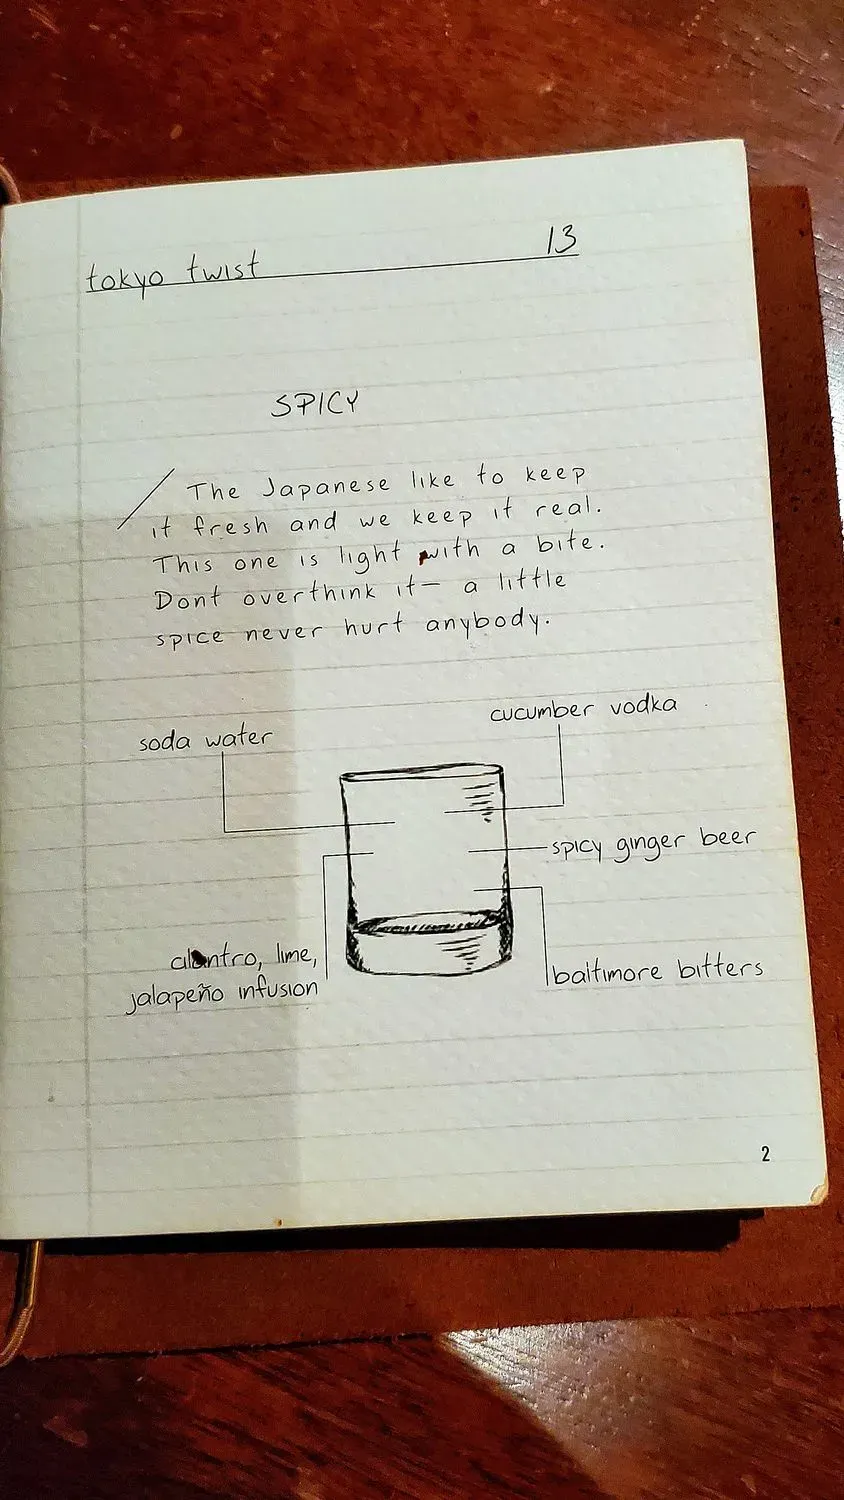 tokyo twist 13
SPICY
The Japanese like to keep
it fresh and we keep it real.
This one is light with a bite.
Dont overthink it— a little
spice never hurt anybody.
cucumber vodka
soda water
spicy ginger beer
cilantro, lime,
jalapeño infusion
baltimore bitters
2